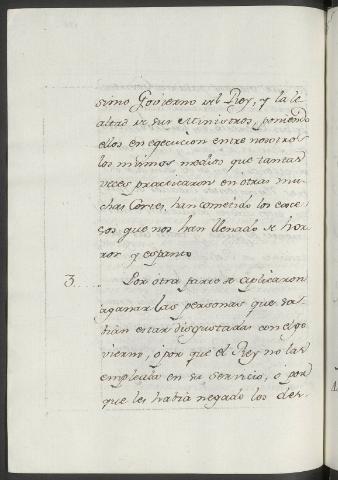 simo Govierno del Rey, y la le
altad de sus Ministros, poniendo
ellos en egecucion entre nosotros
los mismos medios que tantas
veces practicaron en otras mu-
chas Cortes, han cometido los exce-
sos que nos han llenado de hor-
ror y espanto
3.... Por otra parte se aplicaron
aganar las personas que sa-
bian estar disgustadas con el go
vierno, ó por que el Rey no las
empleaba en su servicio, ó por
que les habia negado los des-